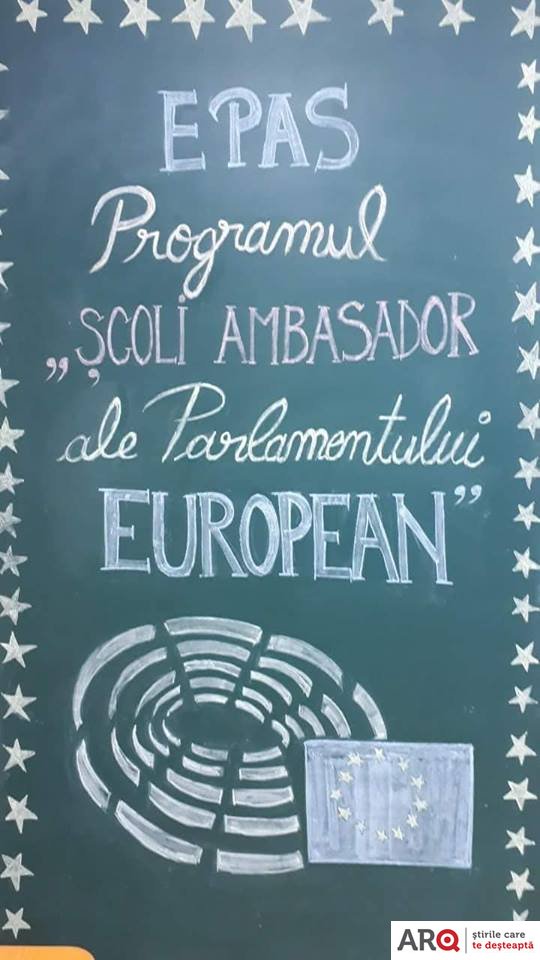 EPAS
Programul
„ŞCOLI AMBASADOR
ale Parlamentului
EUROPEAN”
ARQ
știrile care
te deșteaptă